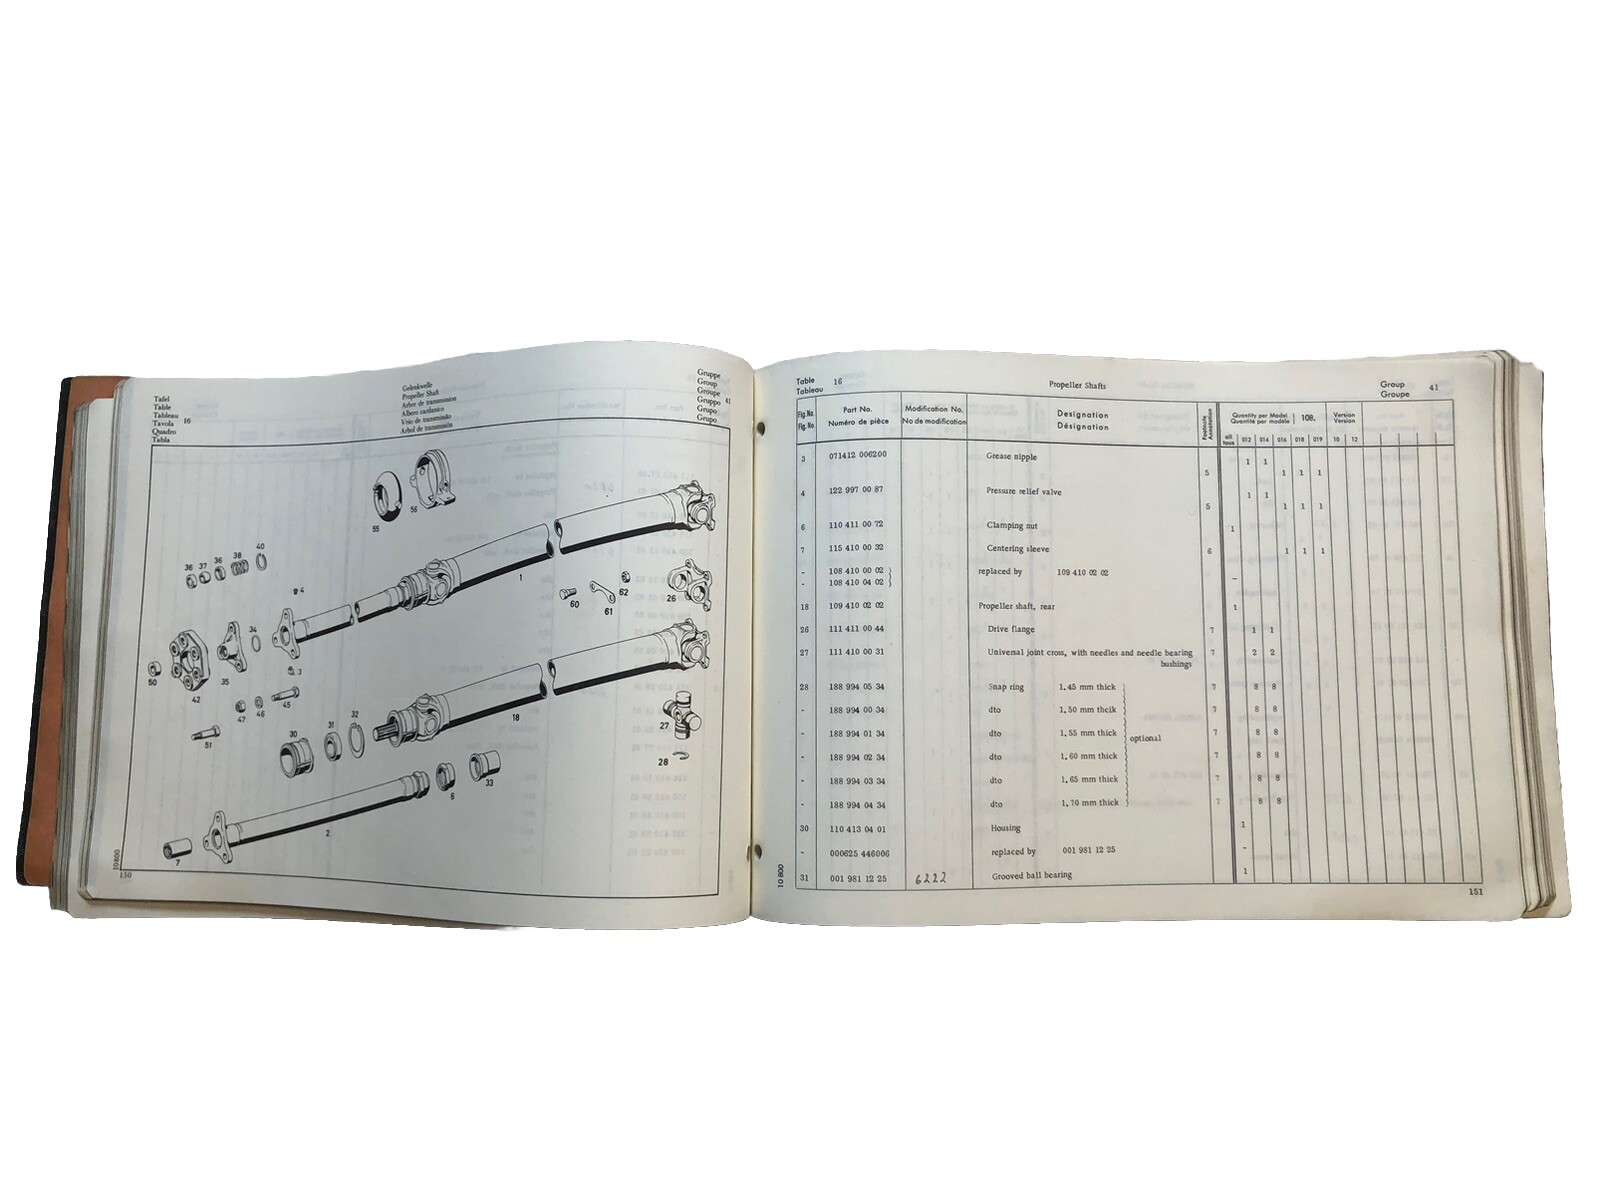 Tafel
Table
Tableau
Tavola 16
Quadro
Tabla
Gelenkwelle
Propeller Shaft
Arbre de transmission
Albero cardanico
Veio de transmissão
Arbol de transmisión
Gruppe
Group
Groupe
Gruppo 41
Grupo
Grupo
55
56
36 37 36 38 40
1
4
60
61
62
26
34
3
50
42
35
47
46
45
51
30
31
32
18
27
28
6
33
2
7
10 800
150
Table 16
Tableau
Propeller Shafts
Group 41
Groupe
Fig. No. Part No. Modification No. Designation Footnote Quantity per Model 108. Version
Fig. No. Numéro de pièce No de modification Désignation Annotation Quantité par modèle Version
all tous 012 014 016 018 019 10 12
3 071412 006200 Grease nipple 1 1
5 1 1 1
4 122 997 00 87 Pressure relief valve 1 1
5 1 1 1
6 110 411 00 72 Clamping nut 1
7 115 410 00 32 Centering sleeve 6 1 1 1
- 108 410 00 02 } replaced by 109 410 02 02
- 108 410 04 02 } -
18 109 410 02 02 Propeller shaft, rear 1
26 111 411 00 44 Drive flange 7 1 1
27 111 410 00 31 Universal joint cross, with needles and needle bearing 7 2 2
bushings
28 188 994 05 34 Snap ring 1.45 mm thick 7 8 8
- 188 994 00 34 dto 1.50 mm theik 7 8 8
- 188 994 01 34 dto 1.55 mm thick 7 8 8
optional
- 188 994 02 34 dto 1.60 mm thick 7 8 8
- 188 994 03 34 dto 1.65 mm thick 7 8 8
- 188 994 04 34 dto 1.70 mm thick 7 8 8
30 110 413 04 01 Housing 1
- 000625 446006 replaced by 001 981 12 25 -
31 001 981 12 25 6222 Grooved ball bearing 1
10 800
151